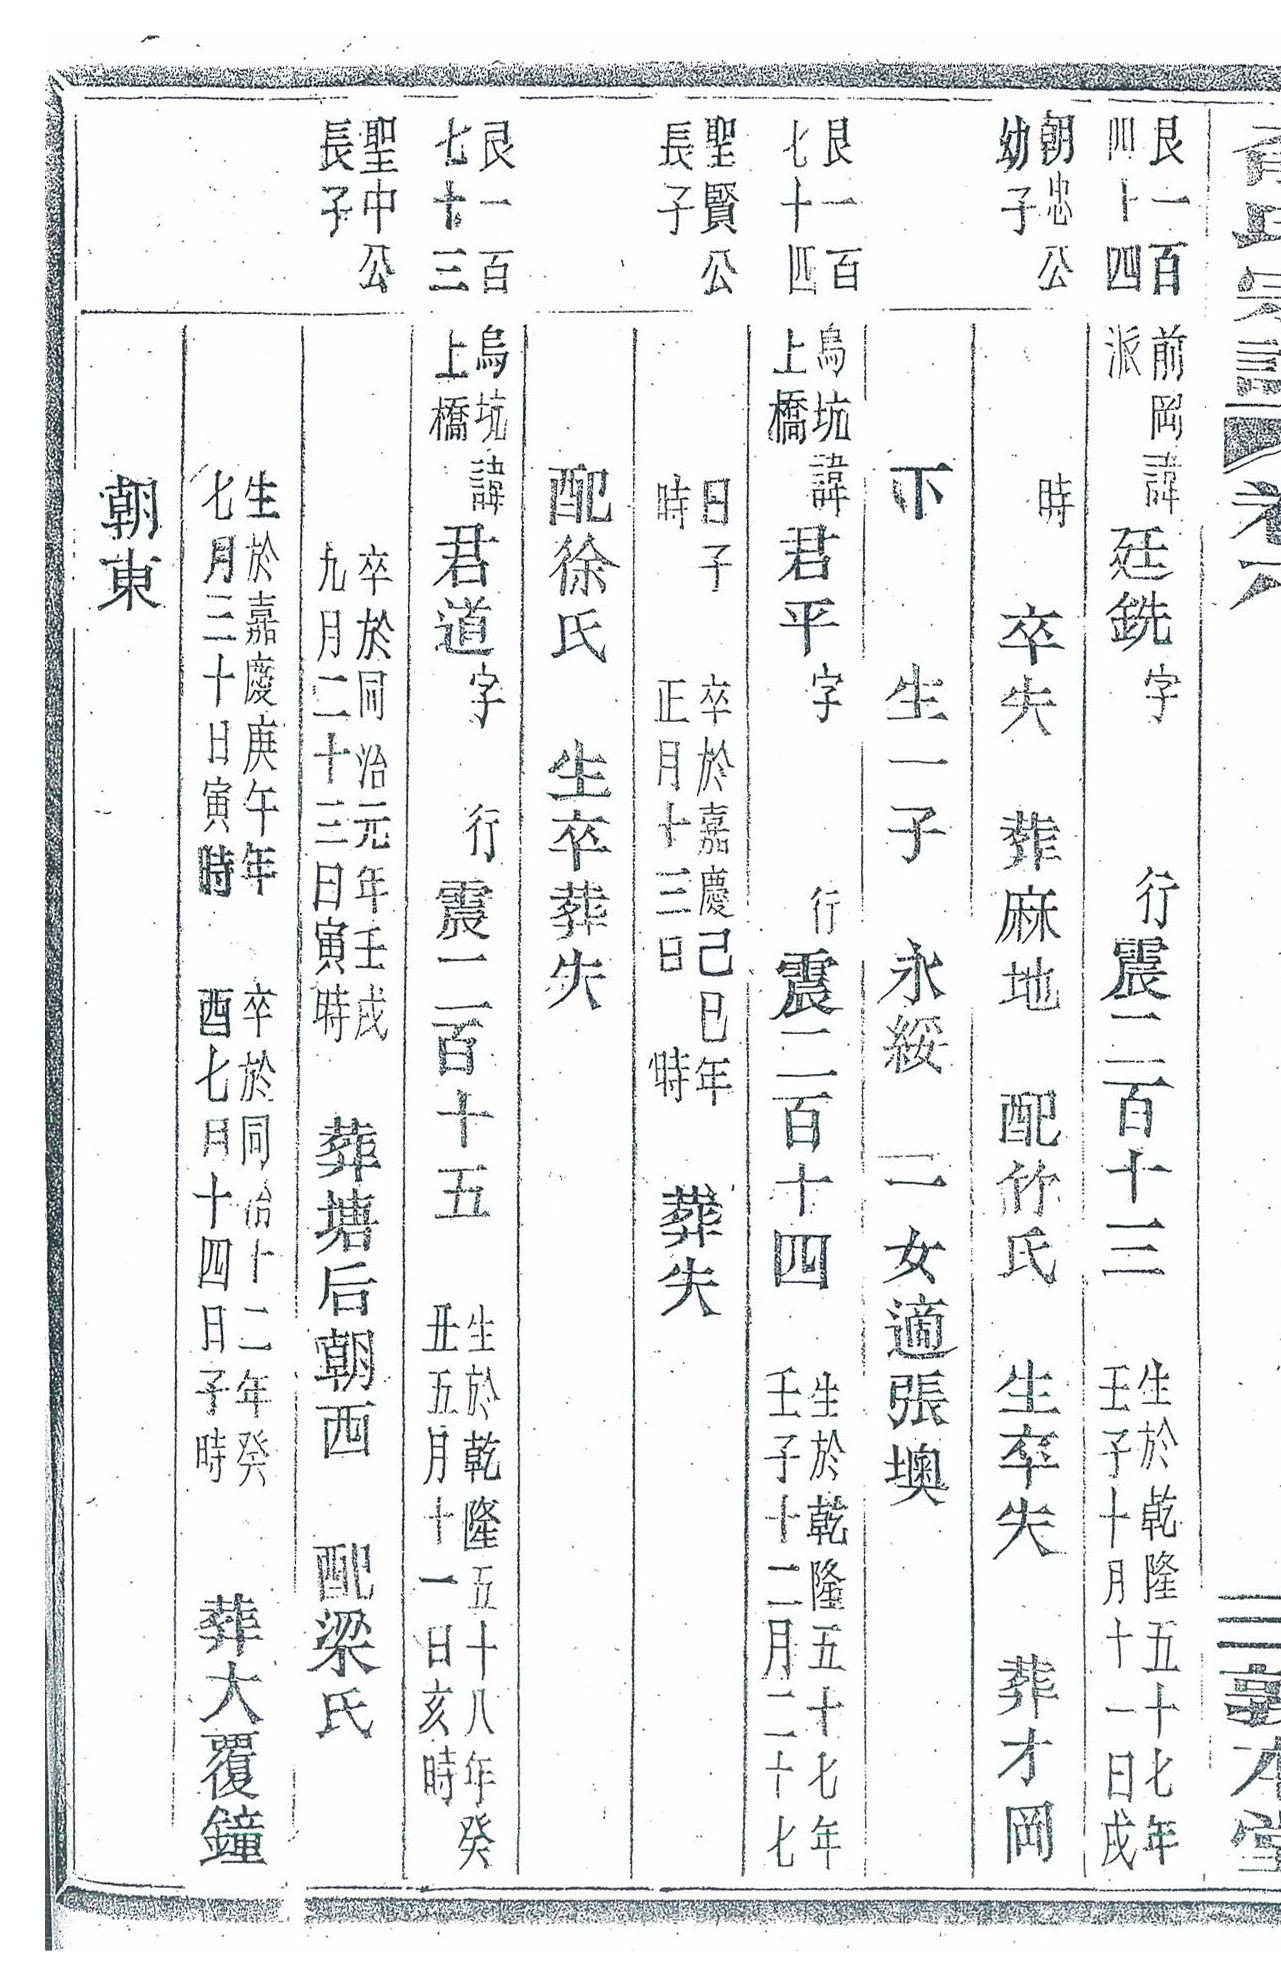 氏宗譜 卷六 三 敦本堂
艮一百
四十四
前岡
派
諱廷銑字 行震二百十三
生於乾隆五十七年
壬子十月十一日戌
朝忠公
幼子
時 卒失 葬麻地 配竹氏 生卒失 葬才岡
下 生一子 永綏 一女適張墺
艮一百
七十四
烏坑
上橋
諱君平字 行震二百十四
生於乾隆五十七年
壬子十二月二十七
聖賢公
長子
日子
時
卒於嘉慶己巳年
正月十三日 時
葬失
配徐氏 生卒葬失
艮一百
七十三
烏坑
上橋
諱君道字 行震二百十五
生於乾隆五十八年癸
丑五月十一日亥時
聖中公
長子
卒於同治元年壬戌
九月二十三日寅時
葬塘后朝西 配梁氏
生於嘉慶庚午年
七月三十日寅時
卒於同治十二年癸
酉七月十四日子時
葬大覆鐘
朝東